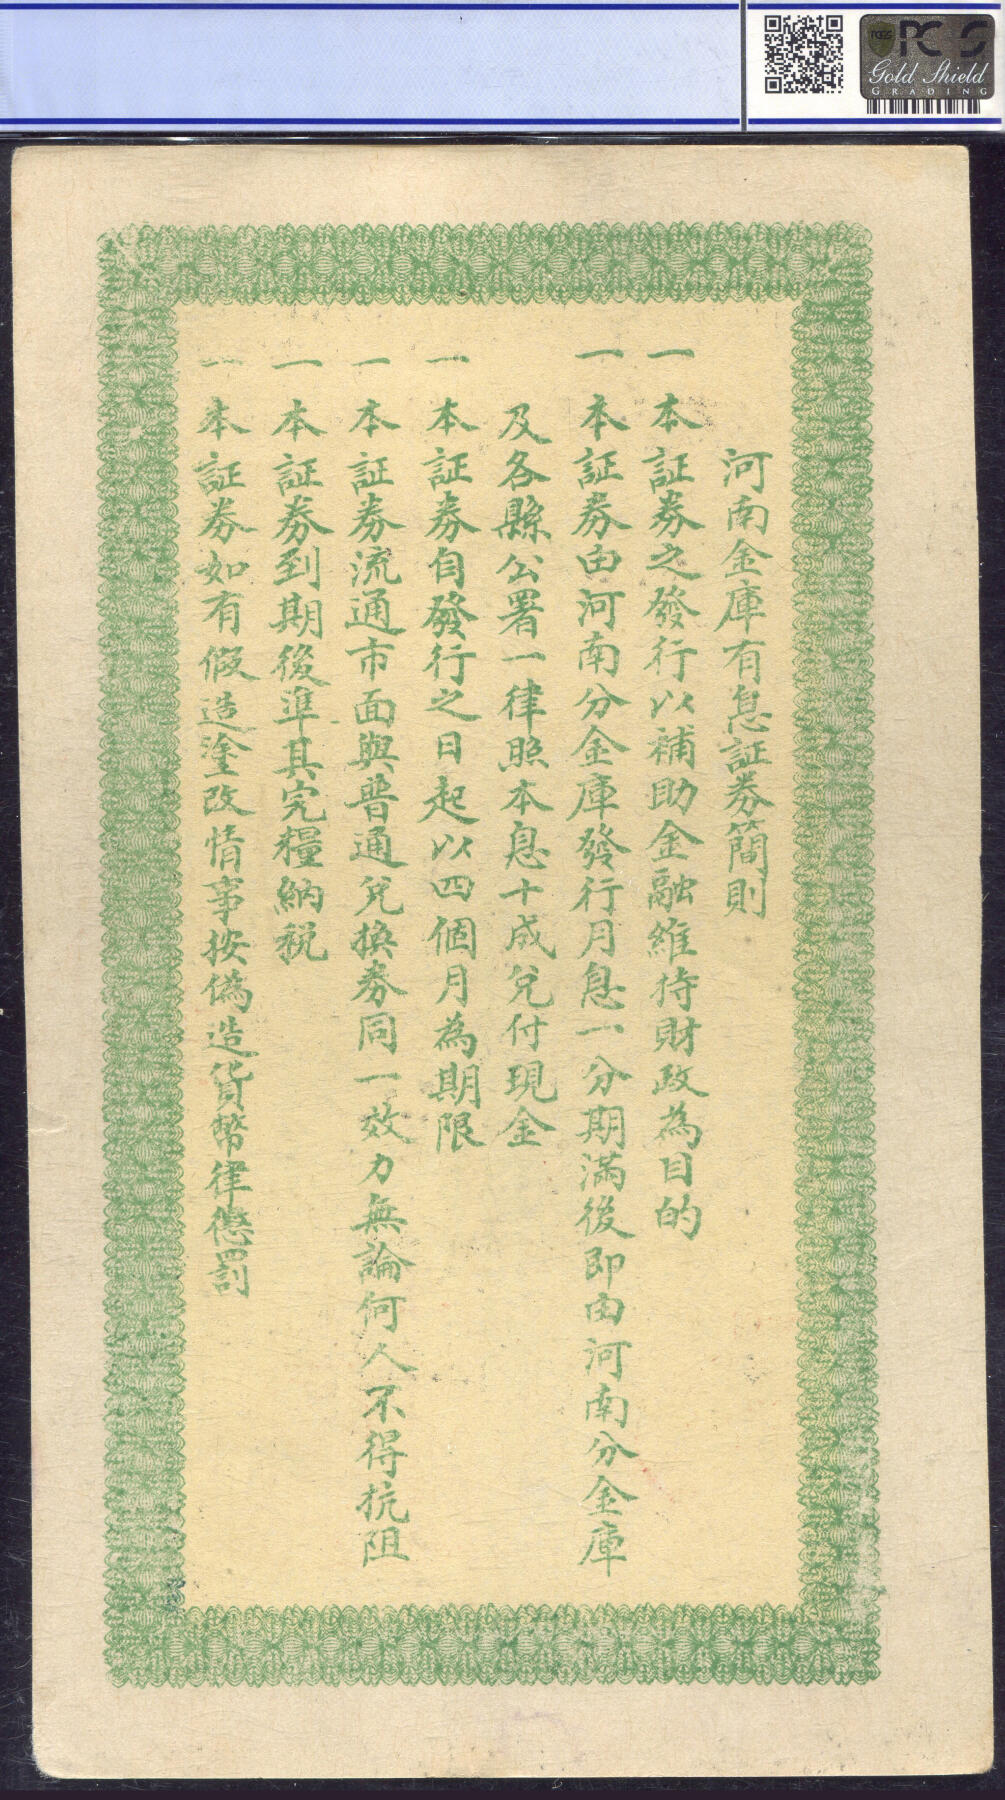 PCGS
PCGS
Gold Shield
GRADING
河南金庫有息証券簡則
一 本証券之發行以補助金融維持財政為目的
一 本証券由河南分金庫發行月息一分期滿後即由河南分金庫
及各縣公署一律照本息十成兌付現金
一 本証券自發行之日起以四個月為期限
一 本証券流通市面與普通兌換券同一效力無論何人不得抗阻
一 本証券到期後準其完糧納稅
一 本証券如有假造塗改情事按偽造貨幣律懲罰